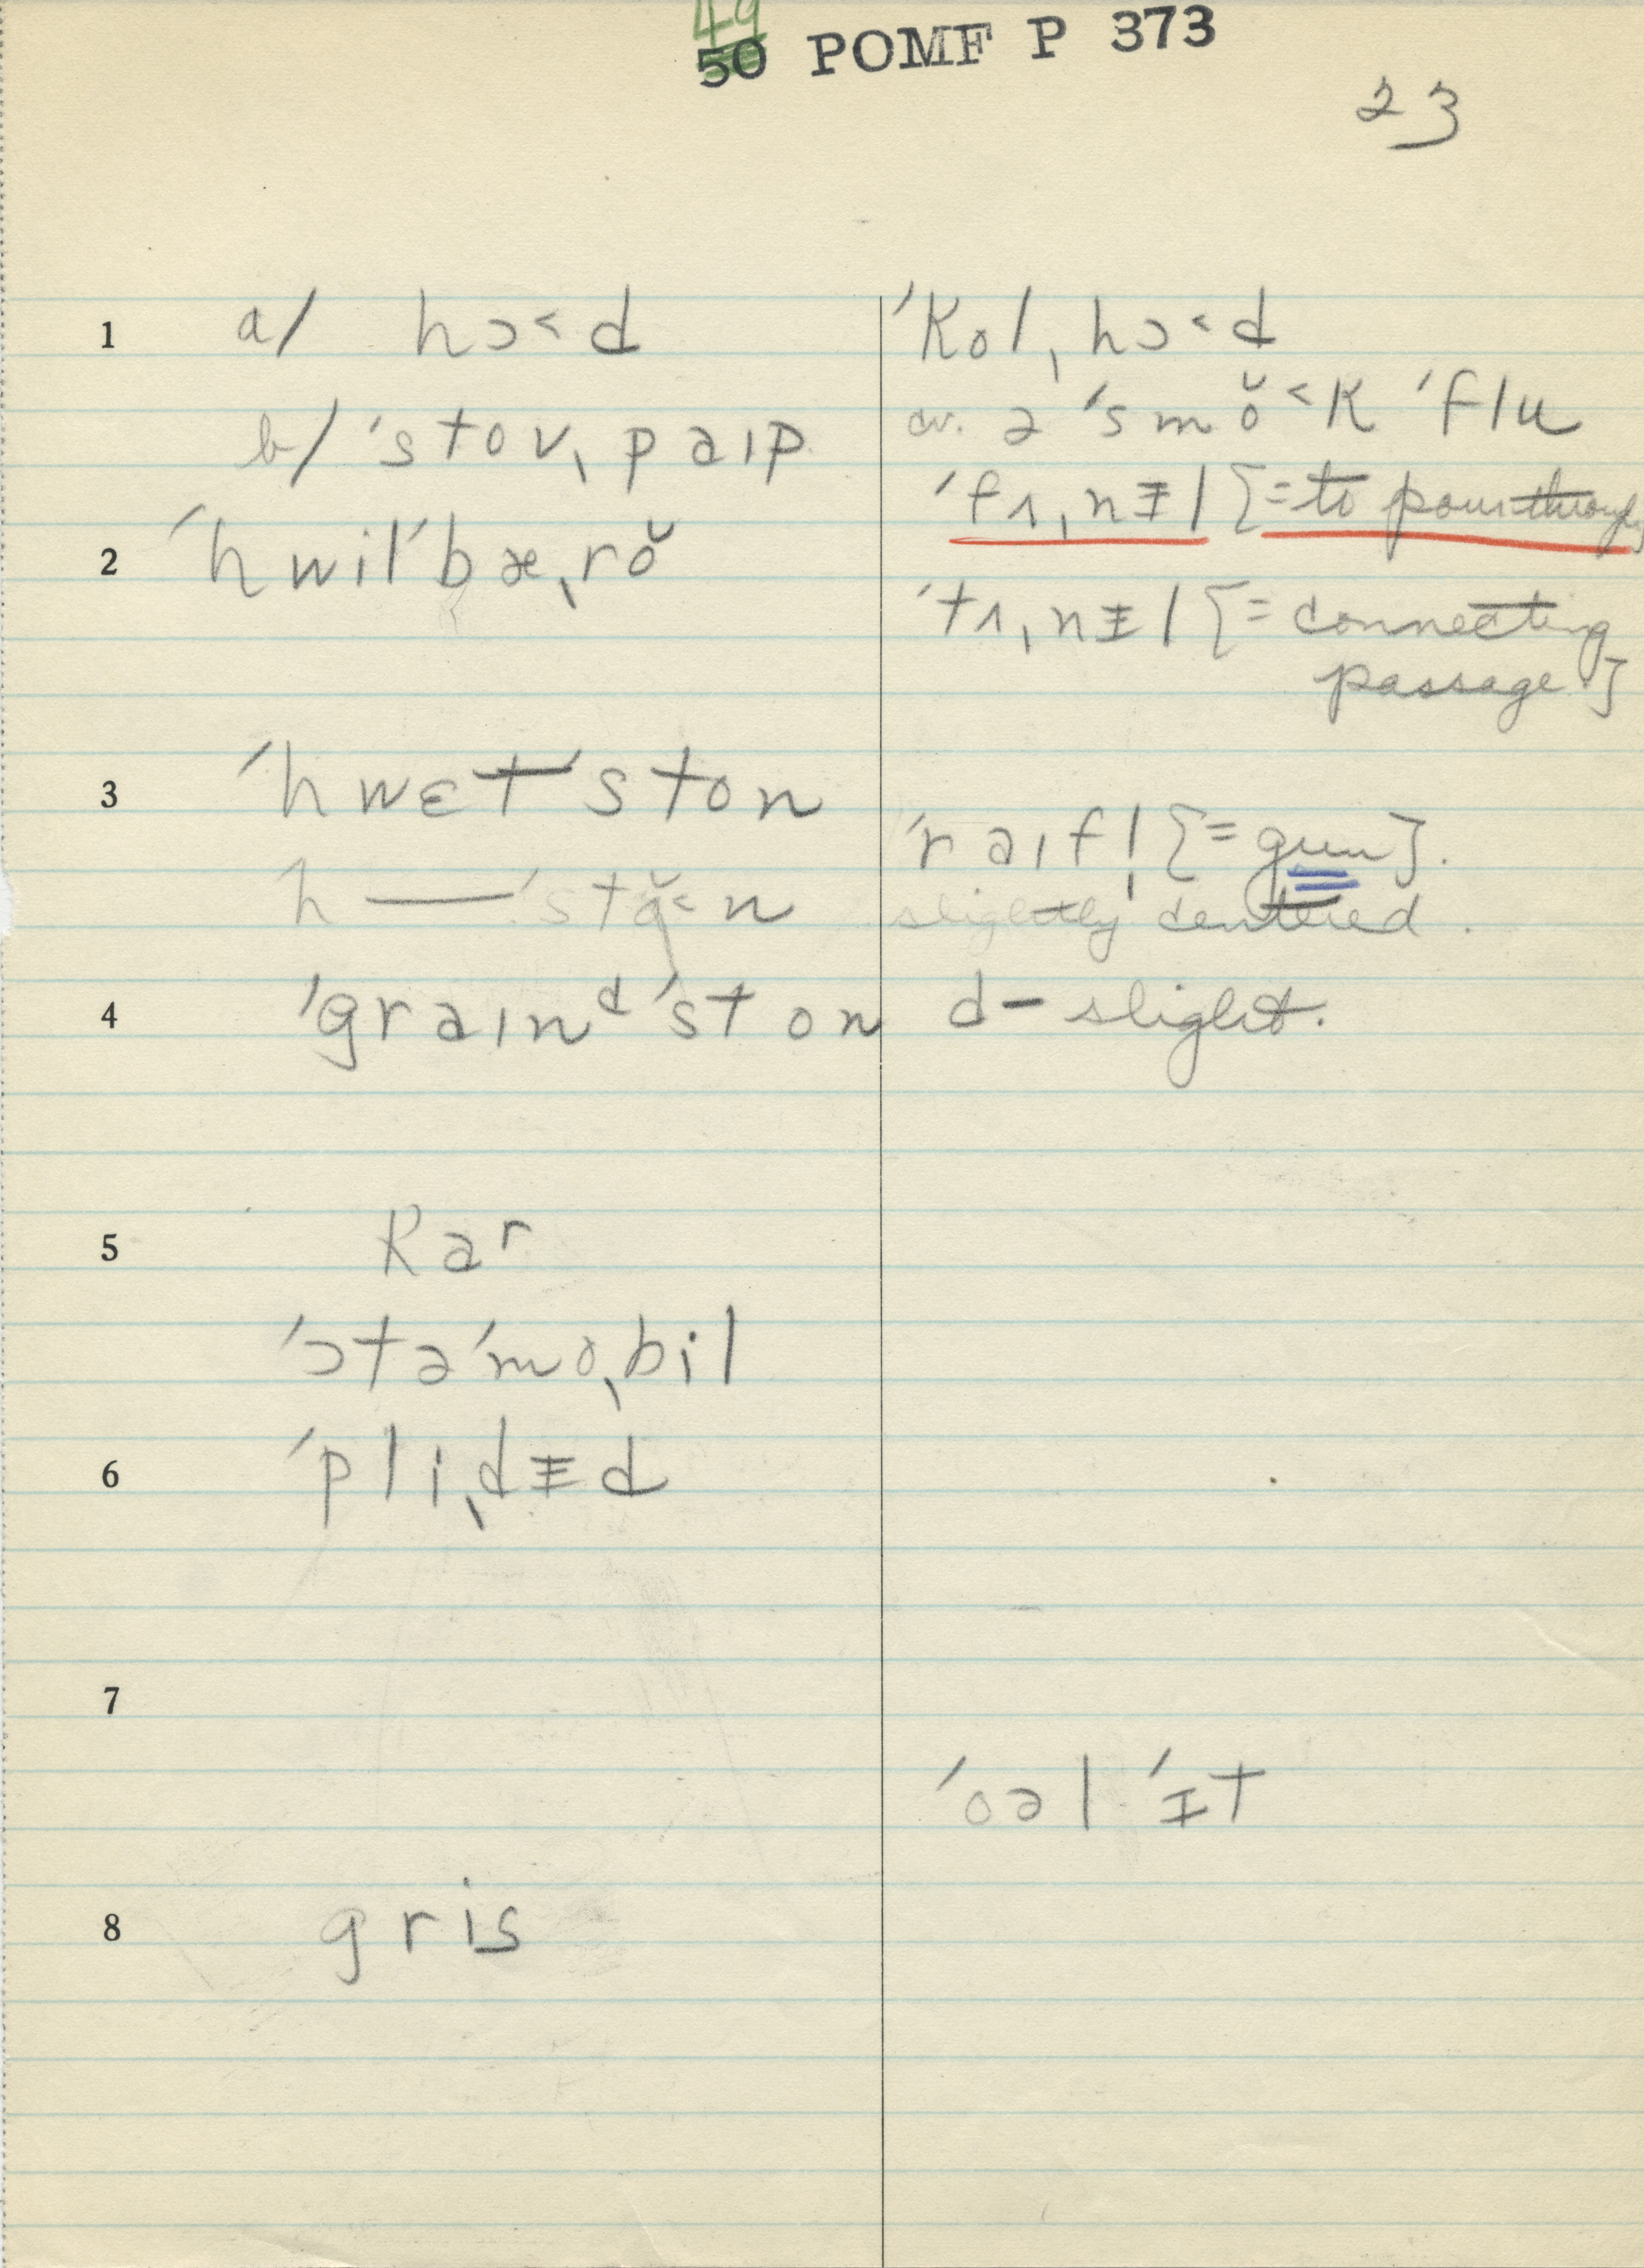 49
50 POMF P 373
23
1 a/ hɔ˂d
ˈkolˌhɔ˂d
b/ ˈstovˌpaɪp
cv. ə ˈsmŏ˂k ˈflu
ˈfʌˌnɪ̵l [=to pour through
2 ˈhwilˈbæˌrŏ
ˈtʌˌnɪ̵l [=connecting
passage.]
3 ˈhwɛtˈston
ˈraɪfl̩ [=gun].
h—ˈstŏ˂n
slightly centered.
4 ˈgraɪnᵈˈston d- slight.
5 kaʳ
ˈɔtəˈmoˌbil
6 ˈpliˌdɪ̵d
7
ˈoəl ˈɪt
8 gris